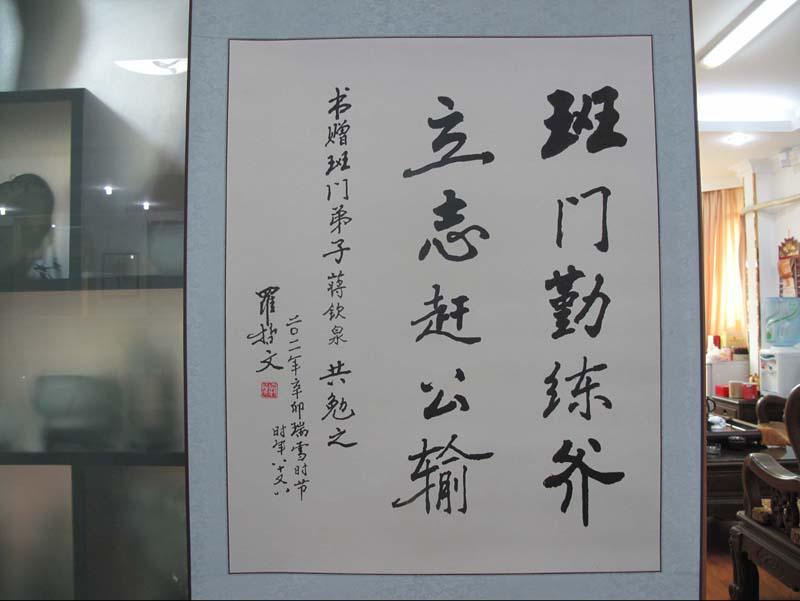 班门勤练斧
立志赶公输
书赠班门弟子蒋钦泉共勉之
二〇一一年辛卯瑞雪时节
时年八十又八
罗哲文